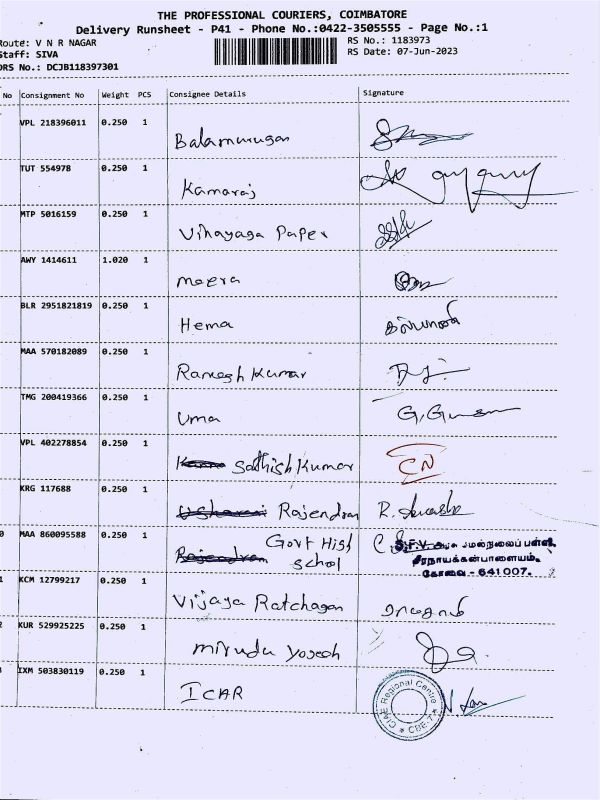 THE PROFESSIONAL COURIERS, COIMBATORE
Delivery Runsheet - P41 - Phone No.:0422-3505555 - Page No.:1
Route: V N R NAGAR
RS No.: 1183973
Staff: SIVA
RS Date: 07-Jun-2023
DRS No.: DCJB118397301
No Consignment No Weight PCS Consignee Details Signature
VPL 218396011 0.250 1 Balamurugan
TUT 554978 0.250 1 Kamaraj
MTP 5016159 0.250 1 Vinayaga Paper
AWY 1414611 1.020 1 meera
BLR 2951821819 0.250 1 Hema கல்யாணி
MAA 570182089 0.250 1 Ramesh Kumar
TMG 200419366 0.250 1 Uma
VPL 402278854 0.250 1 Sathish Kumar CN
KRG 117688 0.250 1 Rajendran
0 MAA 860095588 0.250 1 Govt High School
S.F.V. அரசு மேல்நிலைப்பள்ளி,
வீரநாயக்கன்பாளையம்,
கோவை - 641007.
1 KCM 12799217 0.250 1 Vijaya Ratchagan
2 KUR 529925225 0.250 1 Mirudu Yogesh
3 IXM 503830119 0.250 1 ICAR
CIAE Regional Centre
* CBE-7 *